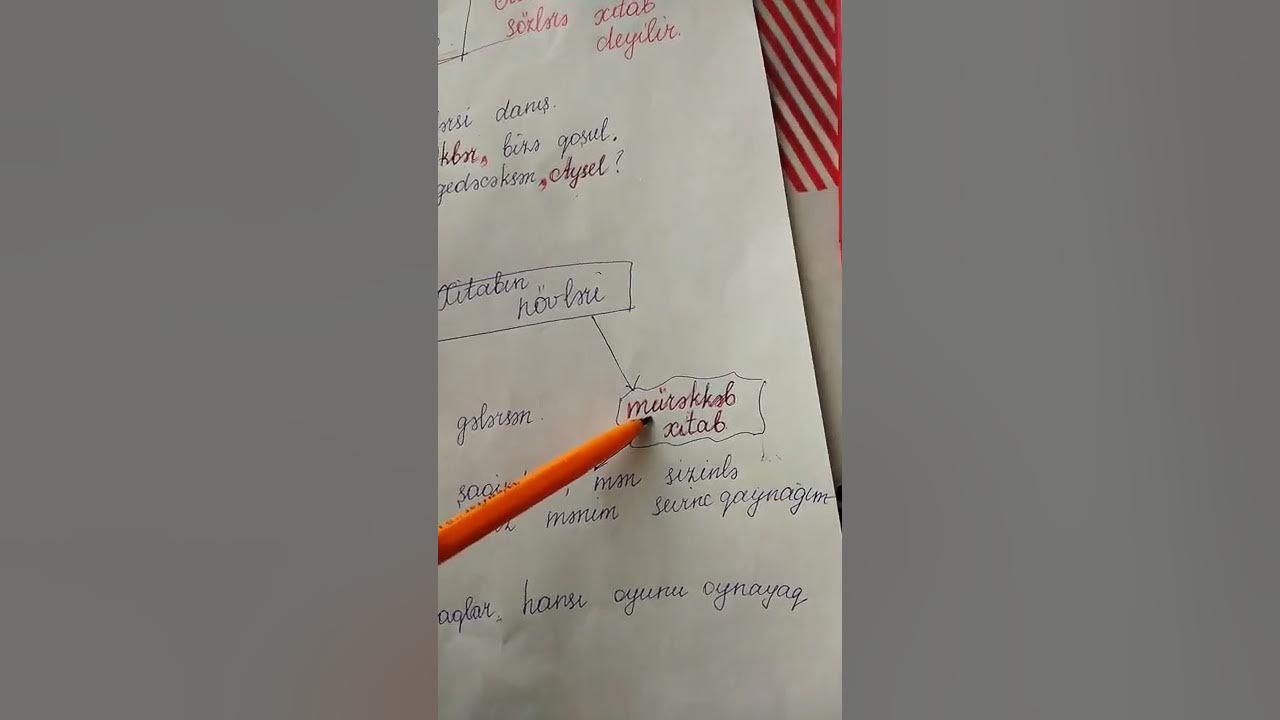 sözlərə xıtab
deyilir.
ərsi danış.
kbər, bizə qoşul.
gedəcəksən, Aysel?
Xitabın
növləri
gələrsən.
mürəkkəb
xıtab
mən sizinlə
mənim sevinc qaynağım
aqlar, hansı oyunu oynayaq